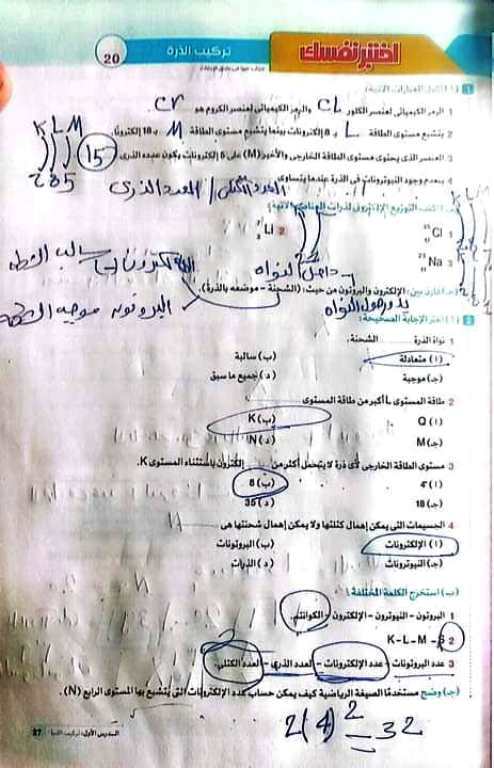 اختبر نفسك
تركيب الذرة
20
1 (أ) أكمل العبارات الآتية:
1 الرمز الكيميائى لعنصر الكلور CL والرمز الكيميائى لعنصر الكروم هو Cr
2 يتشبع مستوى الطاقة L بـ 8 إلكترونات بينما يتشبع مستوى الطاقة M بـ 18 إلكترونًا.
3 العنصر الذى يحتوى مستوى الطاقة الخارجى والأخير (M) على 5 إلكترونات يكون عدده الذرى 15
K L M
2 8 5
4 ينعدم وجود النيوترونات فى الذرة عندما يتساوى
العدد الكتلى / العدد الذرى
(ب) اكتب التوزيع الإلكترونى لذرات العناصر الآتية:
1 Cl
2 Li
3 Na
الإلكترون سالب الشحنة
يدور حول النواة
داخل النواة
البروتون موجب الشحنة
(جـ) قارن بين: الإلكترون والبروتون من حيث: (الشحنة - موضعه بالذرة).
2 (أ) اختر الإجابة الصحيحة:
1 نواة الذرة الشحنة.
(أ) متعادلة (ب) سالبة
(جـ) موجبة (د) جميع ما سبق
2 طاقة المستوى L أكبر من طاقة المستوى
(أ) Q (ب) K
(جـ) M (د) N
3 مستوى الطاقة الخارجى لأى ذرة لا يتحمل أكثر من إلكترون باستثناء المستوى K.
(أ) 4 (ب) 8
(جـ) 18 (د) 35
4 الجسيمات التى يمكن إهمال كتلتها ولا يمكن إهمال شحنتها هى
(أ) الإلكترونات (ب) البروتونات
(جـ) النيوترونات (د) الذرات
(ب) استخرج الكلمة المختلفة:
1 البروتون - النيوترون - الإلكترون - الكوانتم.
2 K - L - M - S
3 عدد البروتونات - عدد الإلكترونات - العدد الذرى - العدد الكتلى.
(جـ) وضح مستخدمًا الصيغة الرياضية كيف يمكن حساب عدد الإلكترونات التى يتشبع بها المستوى الرابع (N).
2(4)² = 32
الدرس الأول: تركيب الذرة 37